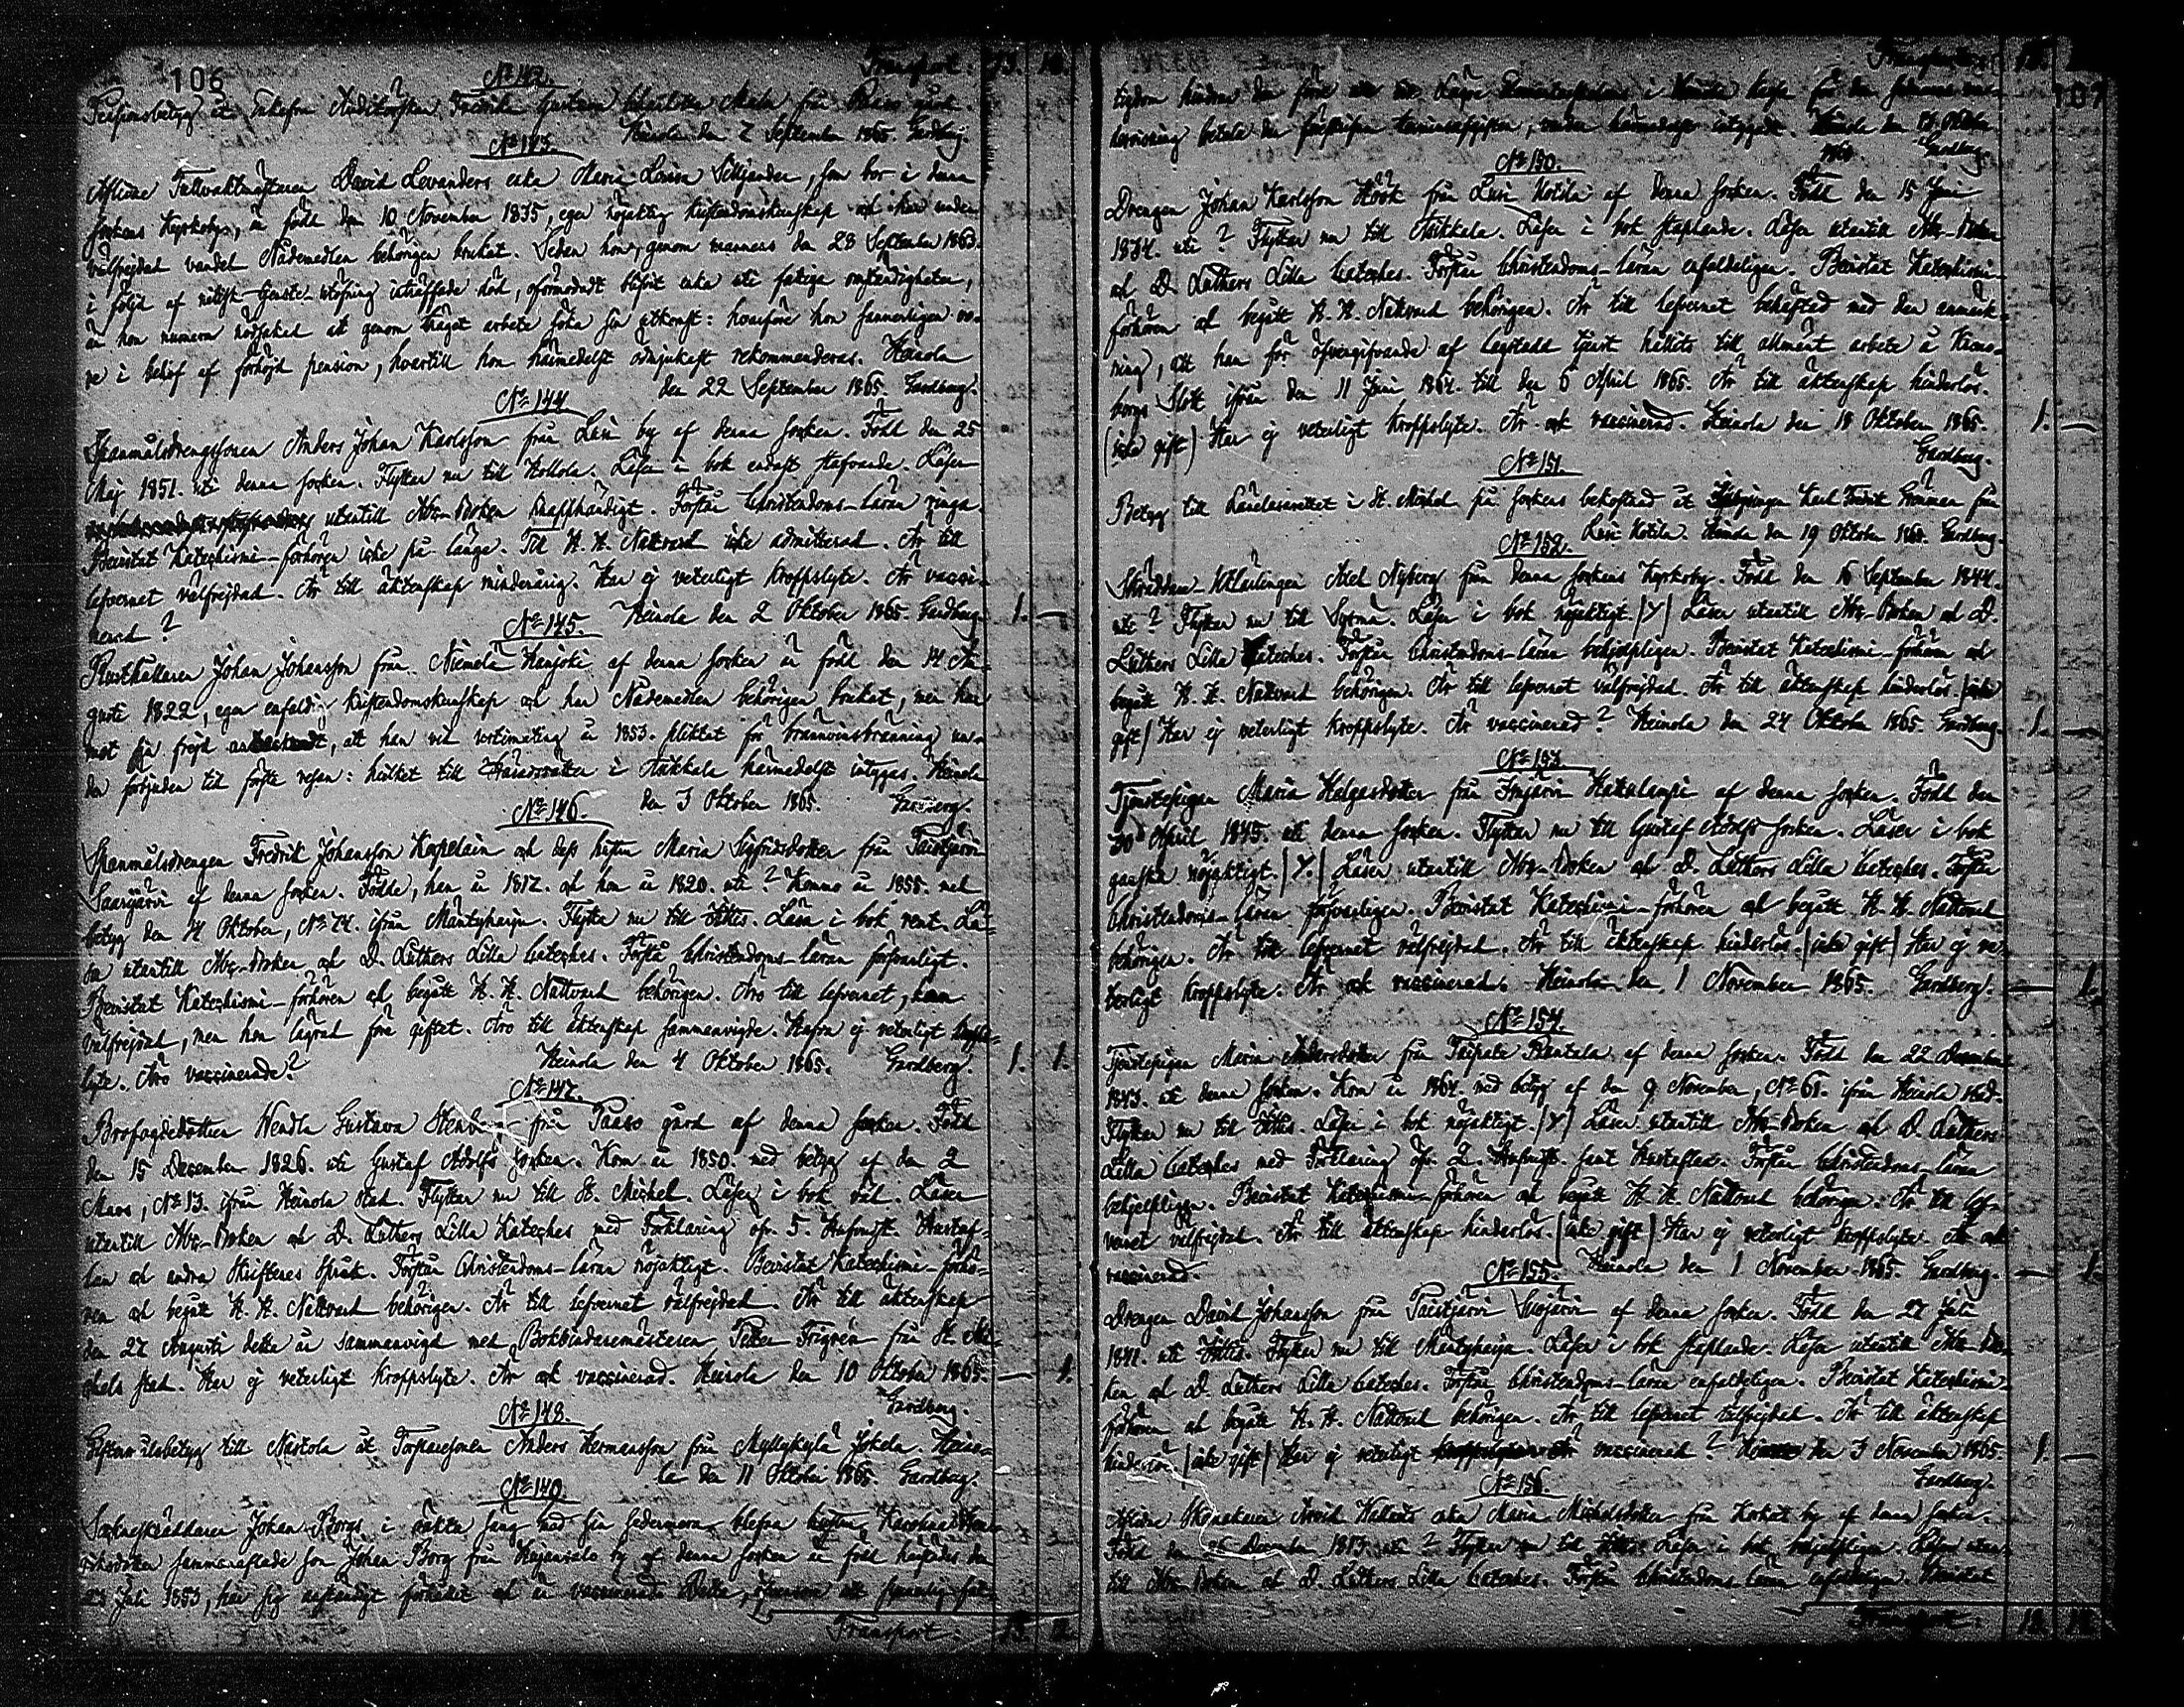 106
Transport. 13. 10.
No 142.
Pensionsbetyg åt Enkefru Auditörskan Fredrika Gustava Charlotta från Paaso gård.
Heinola den 7 September 1865. Gardberg.
No 143.
Aflidne Tullvaktmästaren David Levanders enka Maria Lovisa Silfjander, som bor i denna
sockens kyrkoby, är född den 10 November 1835, eger nöjaktig kristendomskunskap och har under
välfrejdad vandel Nådemedlen behörigen brukat. Sedan hon, genom mannens den 28 September 1863.
i följd af nitisk tjenste-utöfning inträffade död, oförmodadt blifvit enka uti fattiga omständigheter,
är hon numera nödsakad at genom träget arbete söka sin utkomst: hvarföre hon sannerligen vo-
re i behof af förhöjd pension, hvartill hon härmedelst ödmjukast rekommenderas. Heinola
den 22 September 1865. Gardberg.
No 144.
Spanmålsdrengssonen Anders Johan Karlsson från Lusi by af denna socken. Född den 25
Maj 1851. uti denna socken. Flyttar nu till Hollola. Läser i bok endast stafvande. Läser
utantill Abc-Boken knapphändigt. Förstår Christendoms-läran ringa.
Bevistat Katechismi-förhören icke på länge. Till H. H. Nattvard icke admitterad. Är till
lefvernet välfrejdad. Är till äktenskap minderårig. Har ej veterligt kroppslyte. Är vacci-
nerad?
Heinola den 2 Oktober 1865. Gardberg. 1. —
No 145.
Rusthållaren Johan Johansson från Niemelä Hanjoki af denna socken är född den 14 Au-
gusti 1822, eger enfaldig kristendomskunskap och har Nådemedlen behörigen brukat, men har
mot sin frejd antecknadt, att han vid vårtimating år 1853. pliktat för brännvinsbränning un-
der förbjuden tid förste resan: hvilket till Häradsrätten i Asikkala härmedelst intygas. Heinola
den 3 Oktober 1865. Gardberg.
No 146.
Spanmålsdrengen Fredrik Johansson Kapelain och dess hustru Maria Sigfridsdotter från Taistjärvi
Saarijärvi af denna socken. Födde, han år 1817. och hon år 1820. uti? Kommo år 1855. med
betyg den 4 Oktober, No 74. ifrån Mäntyharju. Flytta nu till Ithis. Läsa i bok rent. Lä-
sa utantill Abc-Boken och D. Luthers Lilla Cateches. Förstå Christendoms-läran försvarligt.
Bevistat Katechismi-förhören och begått H. H. Nattvard behörigen. Äro till lefvernet, han
välfrejdad, men hon lägrad före giftet. Äro till äktenskap sammanvigde. Hafva ej veterligt kropps-
lyte. Äro vaccinerade?
Heinola den 4 Oktober 1865. Gardberg. 1. 1.
No 147.
Brofogdedottren Wendla Gustava från Paaso gård af denna socken. Född
den 15 December 1826. uti Gustaf Adolfs socken. Kom år 1850. med betyg af den 2
Mars, No 13. ifrån Heinola stad. Flyttar nu till St. Michel. Läser i bok väl. Läser
utantill Abc-Boken och D. Luthers Lilla Kateches med Förklaring öfv. 5. Hufvudst. Hustaf-
lan och andra Skriftenes språk. Förstår Christendoms-läran nöjaktigt. Bevistat Katechismi-förhö-
ren och begått H. H. Nattvard behörigen. Är till lefvernet välfrejdad. Är till äktenskap
den 27 Augusti detta år sammanvigd med Bokbindaremästaren Petter Frigrén från St. Mi-
chels stad. Har ej veterligt kroppslyte. Är ock vaccinerad. Heinola den 10 Oktober 1865. — 1.
Gardberg.
No 148.
Giftermålsbetyg till Nastola åt Torparesonen Anders Hermansson från Myllykylä Jokela. Heino-
la den 11 Oktober 1865. Gardberg.
No 149.
Sockneskräddaren Johan Borgs i äkta säng med sin sedermera blefna hustru
sammanaflade son Johan Borg från by af denna socken är född härstädes den
Juli 1853, har sig anständigt förhållit och är vaccinerad.
Transport. 13. 12.
107
Transport
tigdom hindra den före i
den föreskrifna terminsafgiften, varder härmedelst intygadt. Heinola den Oktober
Gardberg.
No 150.
Drengen Johan Karlsson Höök från Lusi Kotila af denna socken. Född den 15 Juni
1834. uti? Flyttar nu till Asikkala. Läser i bok staplande. Läser utantill Abc-Boken
och D. Luthers Lilla Cateches. Förstår Christendoms-läran enfaldeligen. Bevistat Katechismi-
förhören och begått H. H. Nattvard behörigen. Är till lefvernet behäftad med den anmärk-
ning, att han för öfvergifvande af lagstadd tjenst hållits till allmänt arbete å Kums-
borgs Slott ifrån den 11 Juni 1864. till den 6 April 1865. Är till äktenskap hinderlös.
(icke gift) Har ej veterligt kroppslyte. Är ock vaccinerad. Heinola den 18 Oktober 1865. 1. —
Gardberg.
No 151.
Betyg till Länelasarettet i St. Michel på sockens bekostnad åt Karl Fredrik från
Lusi Kotila. Heinola den 19 Oktober 1865. Gardberg.
No 152.
Skräddare-Utlärlingen Axel Nyberg från denna sockens kyrkoby. Född den 16 September 1844.
uti? Flyttar nu till Sysmä. Läser i bok nöjaktigt. (Y) Läser utantill Abc-Boken och D.
Luthers Lilla Cateches. Förstår Christendoms-läran behjelpligen. Bevistat Katechismi-förhören och
begått H. H. Nattvard behörigen. Är till lefvernet välfrejdad. Är till äktenskap hinderlös. (icke
gift) Har ej veterligt kroppslyte. Är vaccinerad? Heinola den 24 Oktober 1865. Gardberg. 1. —
No 153.
Tjenstepigan Maria Helgasdotter från Imjärvi Hattulampi af denna socken. Född den
30 April 1845. uti denna socken. Flyttar nu till Gustaf Adolfs socken. Läser i bok
ganska nöjaktigt. (Y.) Läser utantill Abc-Boken och D. Luthers Lilla Cateches. Förstår
Christendoms-läran försvarligen. Bevistat Katechismi-förhören och begått H. H. Nattvard
behörigen. Är till lefvernet välfrejdad. Är till äktenskap hinderlös. (icke gift) Har ej ve-
terligt kroppslyte. Är ock vaccinerad. Heinola den 1 November 1865. Gardberg. — 1.
No 154.
Tjenstepigan Maria Andersdotter från Taipale Rantala af denna socken. Född den 22 December
1843. uti denna socken. Kom år 1864. med betyg af den 9 November, No 61. ifrån Heinola stad.
Flyttar nu till Ithis. Läser i bok nöjaktigt. (Y) Läser utantill Abc-Boken och D. Luthers
Lilla Cateches med Förklaring öfv. 2. Hufvudst. samt Hustaflan. Förstår Christendoms-läran
behjelpligen. Bevistat Katechismi-förhören och begått H. H. Nattvard behörigen. Är till lef-
vernet välfrejdad. Är till äktenskap hinderlös. (icke gift) Har ej veterligt kroppslyte. Är ock
vaccinerad.
Heinola den 1 November 1865. Gardberg. — 1.
No 155.
Drengen David Johansson från Taistjärvi Suojärvi af denna socken. Född den 27 Juli
1841. uti Ithis. Flyttar nu till Mäntyharju. Läser i bok staplande. Läser utantill Abc-Bo-
ken och D. Luthers Lilla Cateches. Förstår Christendoms-läran enfaldeligen. Bevistat Katechismi-
förhören och begått H. H. Nattvard behörigen. Är till lefvernet välfrejdad. Är till äktenskap
hinderlös. (icke gift) Har ej veterligt kroppslyte. Är vaccinerad? Heinola den 3 November 1865. 1. —
Gardberg.
No 156.
Aflidne Skomakaren enka Maria Michelsdotter från by af denna socken.
Född den December uti? Flyttar nu till Ithis. Läser i bok behjelpligen. Läser utan-
till Abc-Boken och D. Luthers Lilla Cateches. Förstår Christendoms-läran enfaldeligen. Bevistat
Transport.